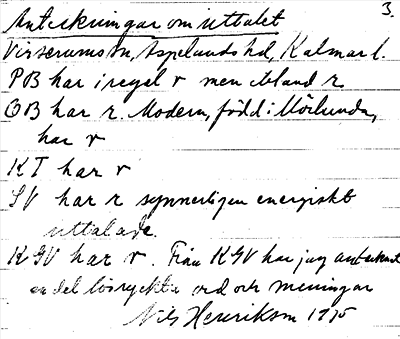 3.
Anteckningar om uttalet
Virserums sn, Aspelands hd, Kalmar l.
PB har i regel r men ibland r
OB har r. Modern, född i Mörlunda,
har r
KT har r
SV har r synnerligen energiskt
uttalade.
KGV har r. Från KGV har jag antecknat
en del lösryckta ord och meningar
Nils Henrikson 1975